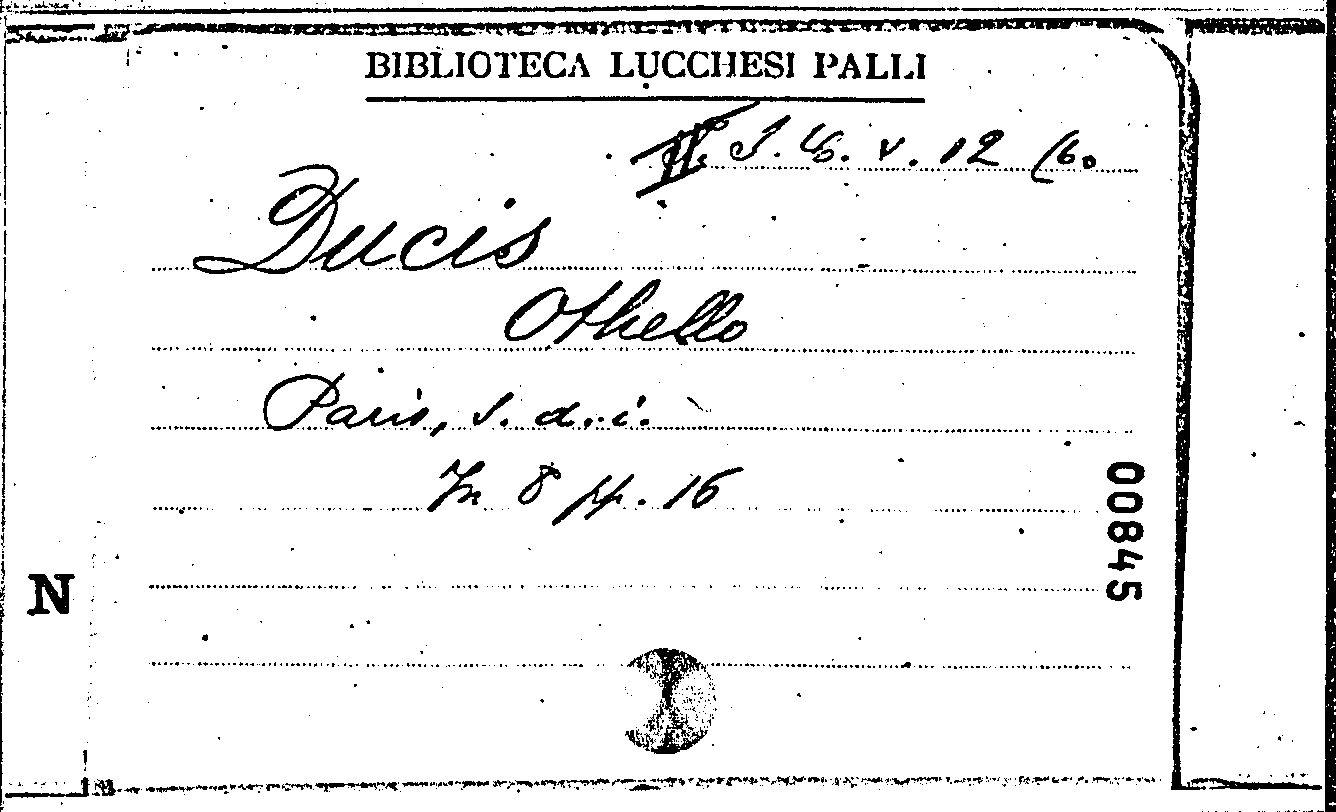 BIBLIOTECA LUCCHESI PALLI
V. 12 (6.
Ducis
Othello
Paris, s. d. i.
In 8 pp. 16
00845
N